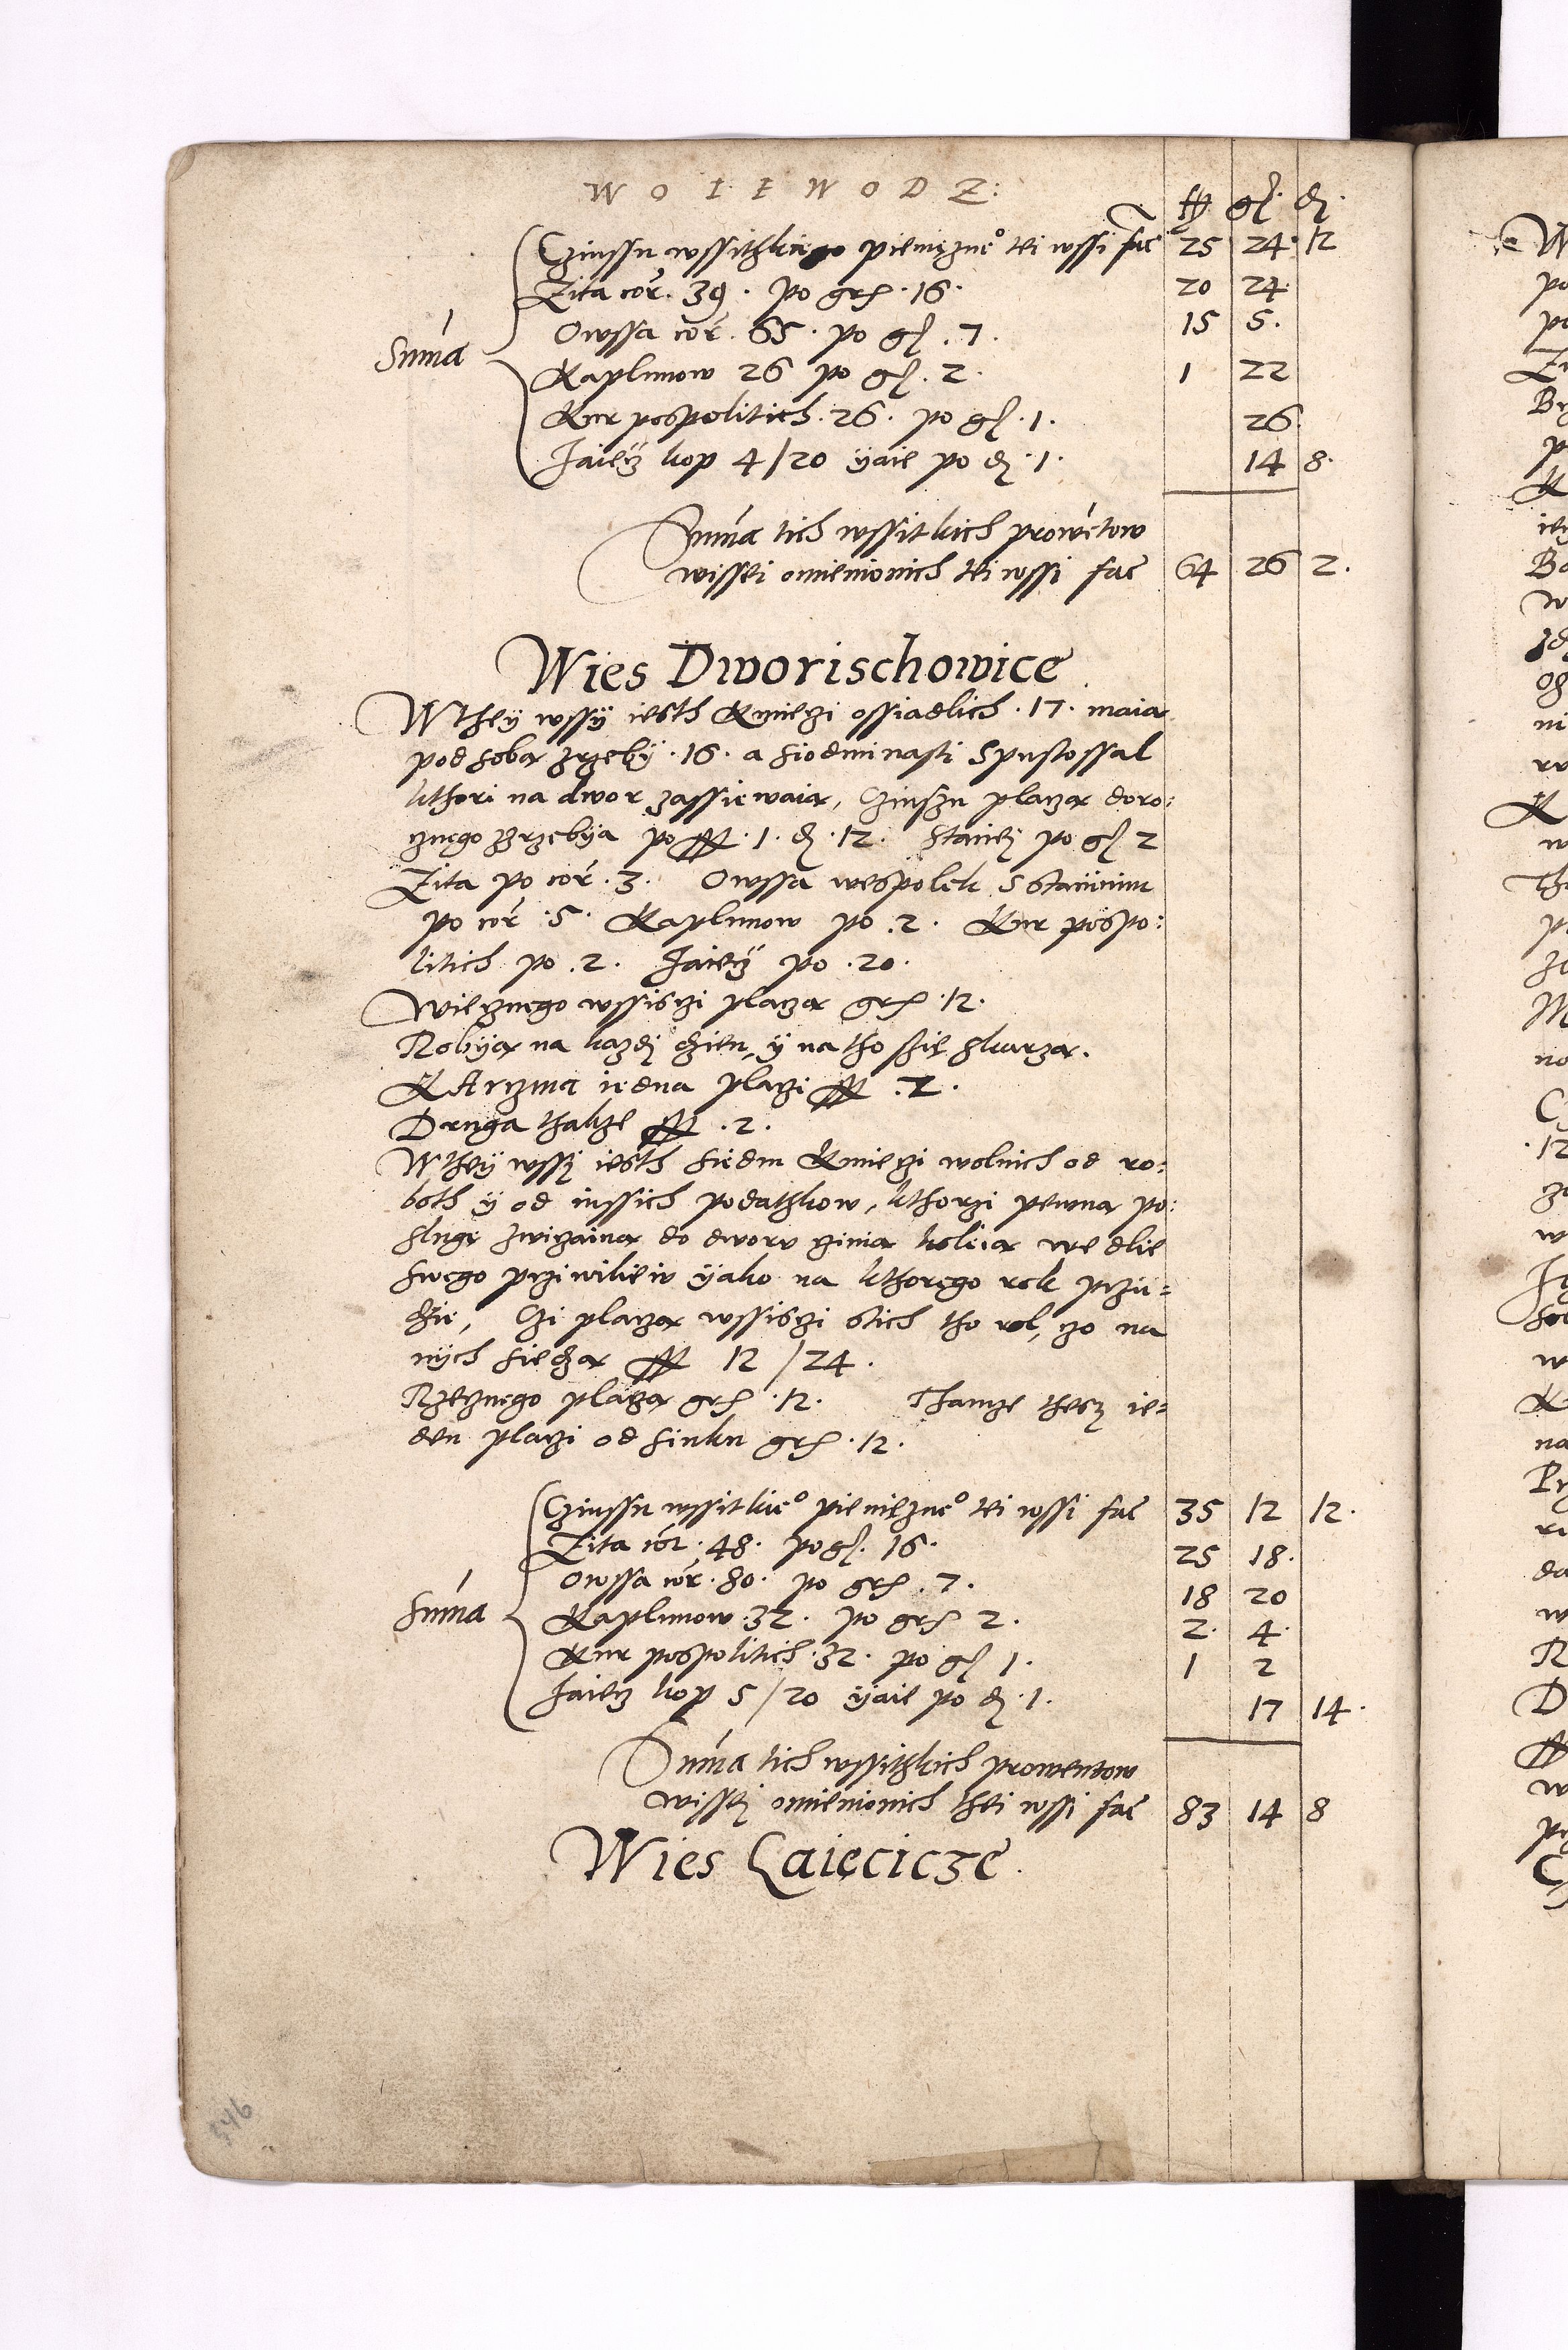 WOIEWODZ:
ff gr d
Czinssu wssithkiego pieniężneº tei wssi fac 25 24 12
Zita cor. 39. po grs. 16. 20 24
Owssa cor. 65. po gr. 7. 15 5.
Suma
Kaplunow 26 po gr. 2. 1 22
Kur pospolitich. 26. po gr. 1. 26.
Jaiecz kop 4/20 ÿaie po d. 1. 14 8.
Suma tich wssitkich prowentow
wissei omienionich tei wssi fac 64 26 2.
Wies Dworischowice
W theÿ wssÿ iesth Kmieczi ossiadlich .17. maia
pod soba zrzebÿ .16. a siodminasti spustossal
kthori na dwor zassiewaia, Czinszu placza doro:
cznego z zrzebÿa po ff .1. d .12. Staciei po gr 2
Zita po cor. 3. Owssa wespolek s staciinim
po cor .5. Kaplunow po .2. Kur pospo:
litich po .2. Jaiecz po .20.
Wiecznego wssisczi placza grs .12.
Robÿa na kazdi dzien, ÿ na tho sżię skarza.
KArczma iedna placzi ff .2.
Druga thakze ff .2.
W theÿ wssi iesth siedm Kmieczi wolnich od ro:
both ÿ od inssich podathkow, kthorzi pewna po:
sluge zwiczaina do dworu czinia koleia wedlie
swego prziwilieiu ÿako na kthorego rok przii=
dzie, Czi placza wssisczi stich tho rol, czo na
nÿch siedza ff 12/24.
Rzecznego placza grs .12. Thamze thesz ie=
den placzi od sinku grs .12.
Czinssu wssitkieº pieniężneº tei wssi fac 35 12 12.
Zita cor. 48. po gr. 16. 25 18.
Owssa cor. 80. po grs .7. 18 20
Suma
Kaplunow .32. po grs 2. 2. 4.
Kur pospolitich .32. po gr 1. 1 2
Jaiecz kop 5/20 ÿaie po d. 1. 17 14.
Suma tich wssithkich prowentow
wissei omienionich thei wssi fac 83 14 8
Wies Laięcicze.
346